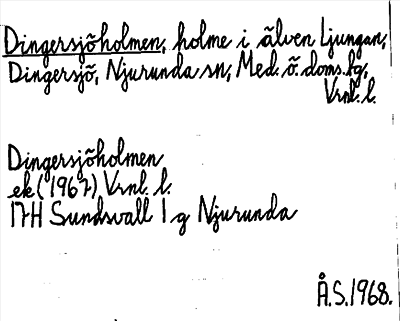 Dingersjöholmen, holme i älven Ljungan,
Dingersjö, Njurunda sn, Med. ö. doms. fg,
Vrnl. l.
Dingersjöholmen
ek (1967) Vrnl. l.
17H Sundsvall 1 g Njurunda
Å.S. 1968.